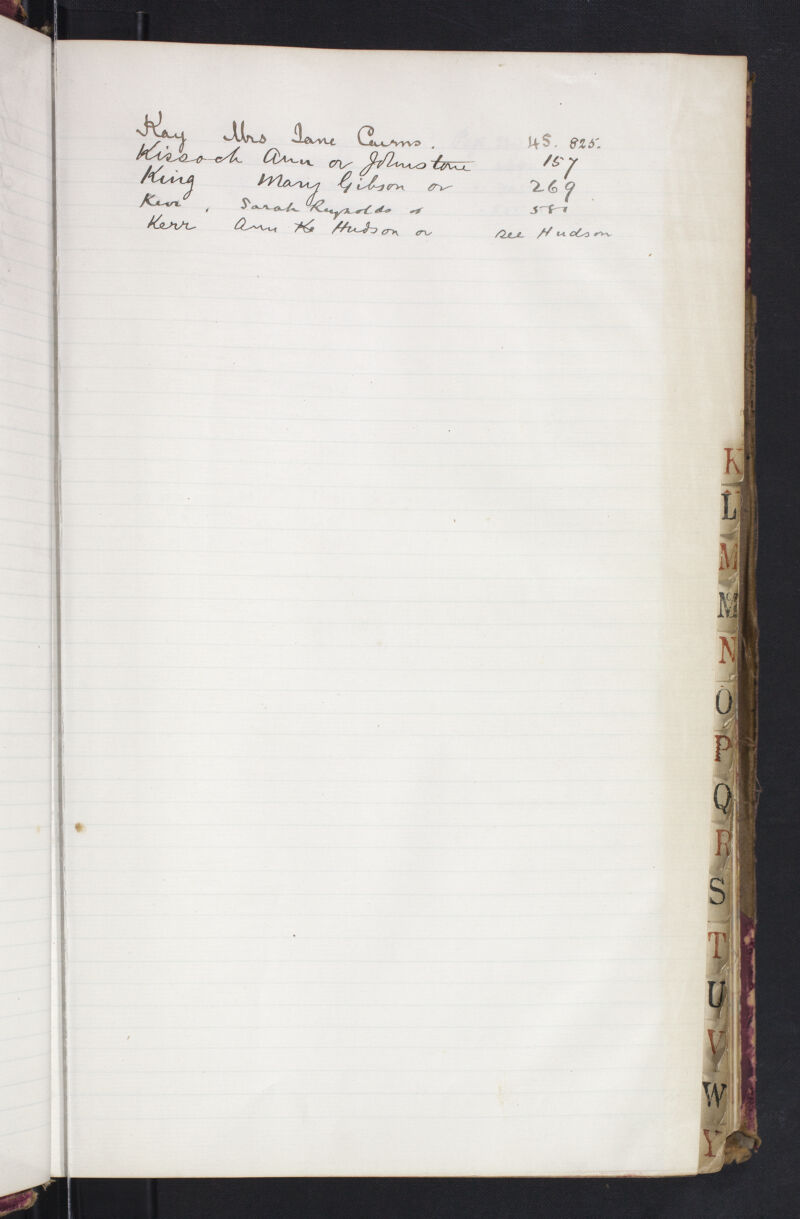 Kay Mrs Jane Cairns. 45. 825.
Kissock Ann or Johnstone 157
King Mary Gibson or 269
Kerr, Sarah Reynolds or 580
Kerr Ann Ke Hudson or see Hudson
K
L
M
M
N
O
P
Q
R
S
T
U
V
W
Y